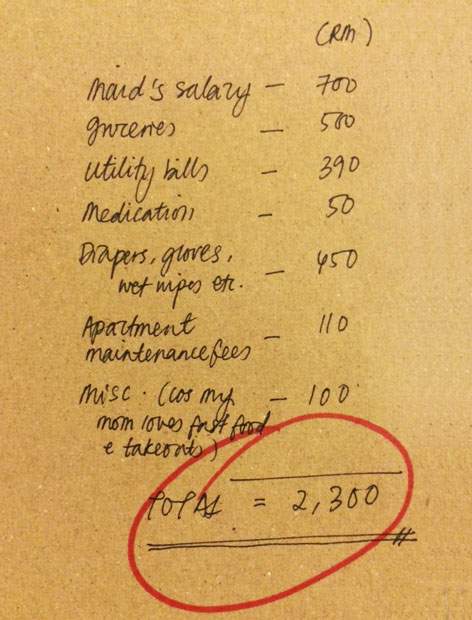 (RM)
Maid's salary – 700
groceries – 500
utility bills – 390
Medication – 50
Diapers, gloves,
wet wipes etc. – 450
Apartment
maintenance fees – 110
Misc. (cos my – 100
mom loves fast food
& takeouts)
TOTAL = 2,300